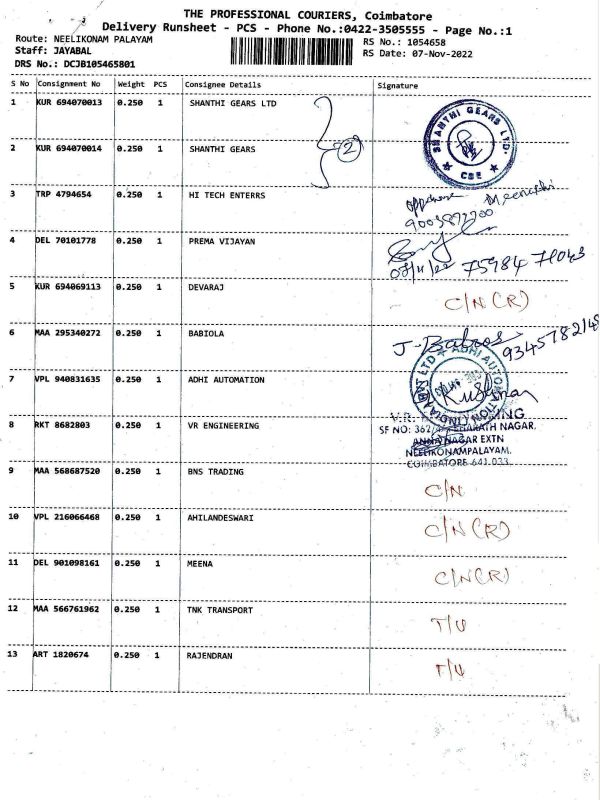 THE PROFESSIONAL COURIERS, Coimbatore
Delivery Runsheet - PCS - Phone No.:0422-3505555 - Page No.:1
Route: NEELIKONAM PALAYAM
Staff: JAYABAL
DRS No.: DCJB105465801
RS No.: 1054658
RS Date: 07-Nov-2022
S No Consignment No Weight PCS Consignee Details Signature
1 KUR 694070013 0.250 1 SHANTHI GEARS LTD
2 KUR 694070014 0.250 1 SHANTHI GEARS (2) SHANTHI GEARS LTD. CBE
3 TRP 4794654 0.250 1 HI TECH ENTERRS
4 DEL 70101778 0.250 1 PREMA VIJAYAN 08/11/22
5 KUR 694069113 0.250 1 DEVARAJ C/N (R)
6 MAA 295340272 0.250 1 BABIOLA
7 VPL 940831635 0.250 1 ADHI AUTOMATION
8 RKT 8682803 0.250 1 VR ENGINEERING
ANNA NAGAR EXTN
NEELIKONAMPALAYAM.
COIMBATORE-641 033.
9 MAA 568687520 0.250 1 BNS TRADING C/N
10 VPL 216066468 0.250 1 AHILANDESWARI C/N (R)
11 DEL 901098161 0.250 1 MEENA C/N (R)
12 MAA 566761962 0.250 1 TNK TRANSPORT T/U
13 ART 1820674 0.250 1 RAJENDRAN T/U